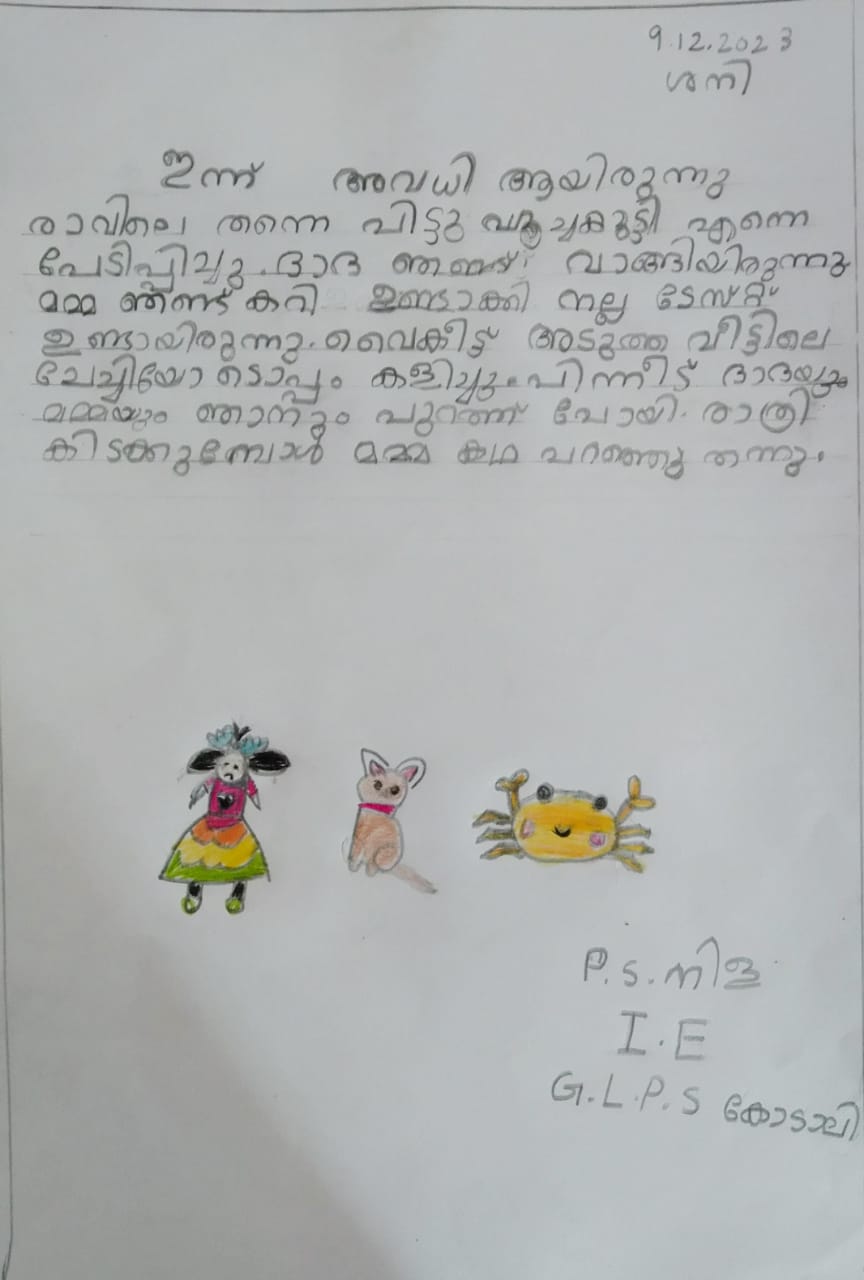 9.12.2023
ശനി
ഇന്ന് അവധി ആയിരുന്നു
രാവിലെ തന്നെ പിട്ടു പൂച്ചകുട്ടി എന്നെ
പേടിപ്പിച്ചു. ദാദ ഞണ്ട് വാങ്ങിയിരുന്നു
മമ്മ ഞണ്ട് കറി ഉണ്ടാക്കി നല്ല ടേസ്റ്റ്
ഉണ്ടായിരുന്നു. വൈകീട്ട് അടുത്ത വീട്ടിലെ
ചേച്ചിയോടൊപ്പം കളിച്ചു. പിന്നീട് ദാദയും
മമ്മയും ഞാനും പുറത്ത് പോയി. രാത്രി
കിടക്കുമ്പോൾ മമ്മ കഥ പറഞ്ഞു തന്നു.
P.S. നിള
I.E
G.L.P.S കോടാലി